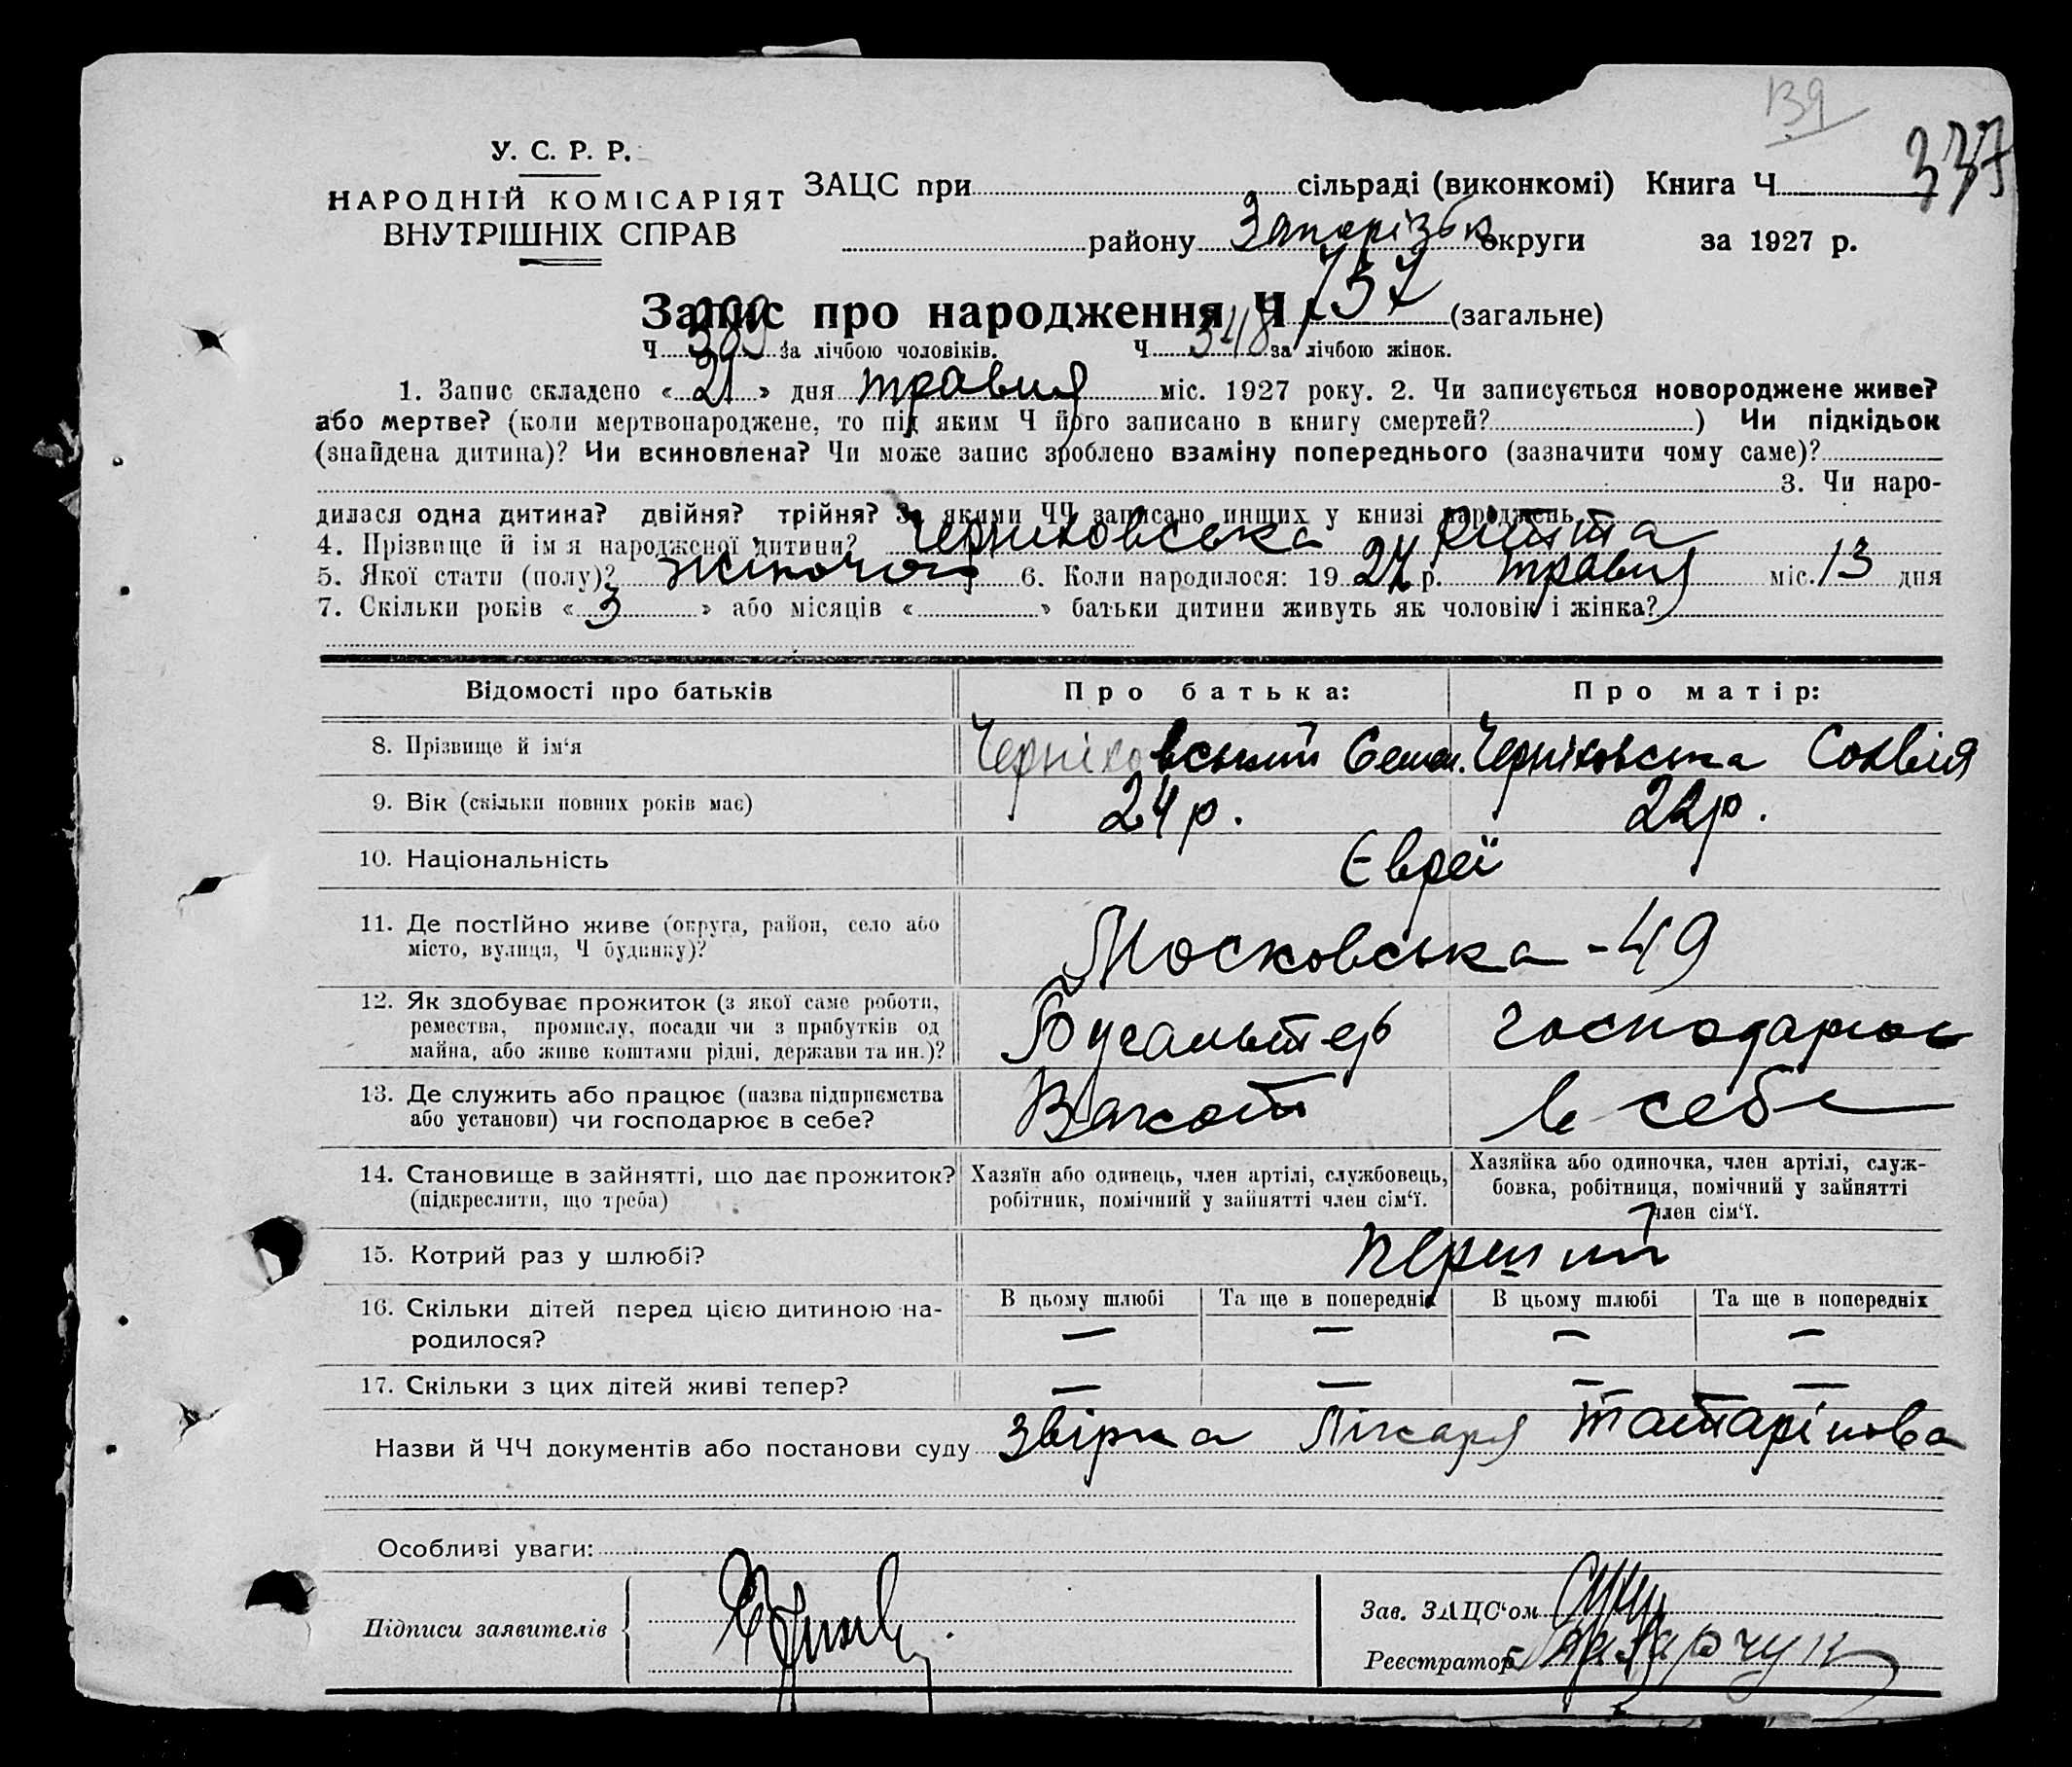 139
337
У. С. Р. Р.
НАРОДНІЙ КОМІСАРІЯТ
ВНУТРІШНІХ СПРАВ
ЗАЦС при сільраді (виконкомі) Книга Ч
району Запорізьк округи за 1927 р.
Запис про народження Ч 737 (загальне)
Ч 389 за лічбою чоловіків. Ч 348 за лічбою жінок.
1. Запис складено « 21 » дня травня міс. 1927 року. 2. Чи записується новороджене живе?
або мертве? (коли мертвонароджене, то під яким Ч його записано в книгу смертей? ) Чи підкідьок
(знайдена дитина)? Чи всиновлена? Чи може запис зроблено взаміну попереднього (зазначити чому саме)?
3. Чи наро-
дилася одна дитина? двійня? трійня? За якими ЧЧ записано инших у книзі народжень
4. Прізвище й ім'я народженої дитини? Черніховська Рітта
5. Якої стати (полу)? жіночої 6. Коли народилося: 19 27 р. травня міс. 13 дня
7. Скільки років « 3 » або місяців « » батьки дитини живуть як чоловік і жінка?
Відомості про батьків Про батька: Про матір:
8. Прізвище й ім'я Черніховський Семен. Черніховська Софвія
9. Вік (скільки повних років має) 24 р. 22 р.
10. Національність Євреї
11. Де постійно живе (округа, район, село або
місто, вулиця, Ч будинку)? Московська - 49
12. Як здобуває прожиток (з якої саме роботи,
ремества, промислу, посади чи з прибутків од
майна, або живе коштами рідні, держави та ин.)? Бугальтер господарює
13. Де служить або працює (назва підприємства
або установи) чи господарює в себе? в себе
14. Становище в зайнятті, що дає прожиток?
(підкреслити, що треба)
Хазяїн або одинець, член артілі, службовець,
робітник, помічний у зайнятті член сім'ї.
Хазяйка або одиночка, член артілі, служ-
бовка, робітниця, помічний у зайнятті
член сім'ї.
15. Котрий раз у шлюбі? перший
16. Скільки дітей перед цією дитиною на-
родилося?
В цьому шлюбі Та ще в попередніх В цьому шлюбі Та ще в попередніх
— — — —
17. Скільки з цих дітей живі тепер? — — — —
Назви й ЧЧ документів або постанови суду Звірка Лікаря Татарінова
Особливі уваги:
Підписи заявителів
Зав. ЗАЦС'ом
Реєстратор